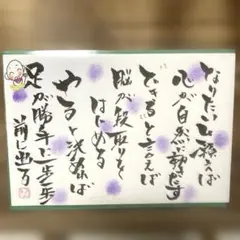 なりたい姿を描えば
心が自然に動きだす
できる"と言えば
脳が段取りを
はじめる
やると決めれば
足が勝手に一歩一歩
前に出る